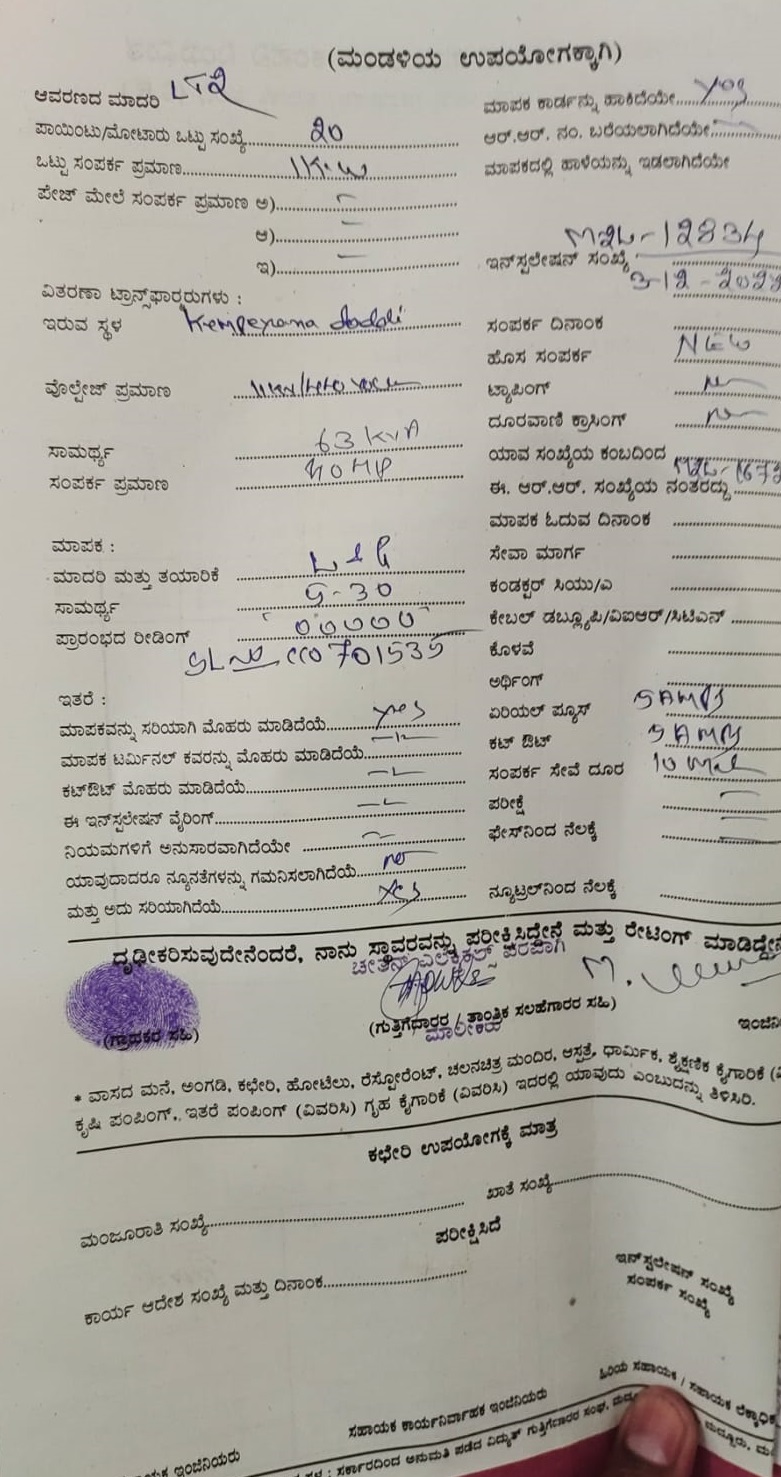 (ಮಂಡಳಿಯ ಉಪಯೋಗಕ್ಕಾಗಿ)
ಆವರಣದ ಮಾದರಿ LT2
ಪಾಯಿಂಟು/ಮೋಟಾರು ಒಟ್ಟು ಸಂಖ್ಯೆ 20
ಒಟ್ಟು ಸಂಪರ್ಕ ಪ್ರಮಾಣ 1K.W
ಪೇಜ್ ಮೇಲೆ ಸಂಪರ್ಕ ಪ್ರಮಾಣ ಅ)
ಆ)
ಇ)
ವಿತರಣಾ ಟ್ರಾನ್ಸ್‌ಫಾರ್‍ಮರುಗಳು :
ಇರುವ ಸ್ಥಳ
ವೊಲ್ಟೇಜ್ ಪ್ರಮಾಣ
ಸಾಮರ್ಥ್ಯ 63 KVA
ಸಂಪರ್ಕ ಪ್ರಮಾಣ 40 HP
ಮಾಪಕ :
ಮಾದರಿ ಮತ್ತು ತಯಾರಿಕೆ L&G
ಸಾಮರ್ಥ್ಯ 5-30
ಪ್ರಾರಂಭದ ರೀಡಿಂಗ್ 00000
SL NO CC0701535
ಇತರೆ :
ಮಾಪಕವನ್ನು ಸರಿಯಾಗಿ ಮೊಹರು ಮಾಡಿದೆಯೆ yes
ಮಾಪಕ ಟರ್ಮಿನಲ್ ಕವರನ್ನು ಮೊಹರು ಮಾಡಿದೆಯೆ
ಕಟ್‌ಔಟ್ ಮೊಹರು ಮಾಡಿದೆಯೆ
ಈ ಇನ್‌ಸ್ಟಲೇಷನ್ ವೈರಿಂಗ್
ನಿಯಮಗಳಿಗೆ ಅನುಸಾರವಾಗಿದೆಯೇ
ಯಾವುದಾದರೂ ನ್ಯೂನತೆಗಳನ್ನು ಗಮನಿಸಲಾಗಿದೆಯೆ no
ಮತ್ತು ಅದು ಸರಿಯಾಗಿದೆಯೆ yes
ಮಾಪಕ ಕಾರ್ಡನ್ನು ಹಾಕಿದೆಯೇ yes
ಆರ್.ಆರ್. ನಂ. ಬರೆಯಲಾಗಿದೆಯೇ
ಮಾಪಕದಲ್ಲಿ ಹಾಳೆಯನ್ನು ಇಡಲಾಗಿದೆಯೇ
M2L-12834
ಇನ್‌ಸ್ಟಲೇಷನ್ ಸಂಖ್ಯೆ
3-12-2022
ಸಂಪರ್ಕ ದಿನಾಂಕ
ಹೊಸ ಸಂಪರ್ಕ NEW
ಟ್ಯಾಪಿಂಗ್
ದೂರವಾಣಿ ಕ್ರಾಸಿಂಗ್
ಯಾವ ಸಂಖ್ಯೆಯ ಕಂಬದಿಂದ
ಈ. ಆರ್.ಆರ್. ಸಂಖ್ಯೆಯ ನಂತರದ್ದು
ಮಾಪಕ ಓದುವ ದಿನಾಂಕ
ಸೇವಾ ಮಾರ್ಗ
ಕಂಡಕ್ಟರ್ ಸಿಯು/ಎ
ಕೇಬಲ್ ಡಬ್ಲ್ಯೂಪಿ/ವಿಐಆರ್/ಸಿಟಿಎಸ್
ಕೊಳವೆ
ಅರ್ಥಿಂಗ್
ಏರಿಯಲ್ ಫ್ಯೂಸ್ 5 AMPS
ಕಟ್ ಔಟ್ 5 AMPS
ಸಂಪರ್ಕ ಸೇವೆ ದೂರ
ಪರೀಕ್ಷೆ
ಫೇಸ್‌ನಿಂದ ನೆಲಕ್ಕೆ
ನ್ಯೂಟ್ರಲ್‌ನಿಂದ ನೆಲಕ್ಕೆ
ದೃಢೀಕರಿಸುವುದೇನೆಂದರೆ, ನಾನು ಸ್ಥಾವರವನ್ನು ಪರೀಕ್ಷಿಸಿದ್ದೇನೆ ಮತ್ತು ರೇಟಿಂಗ್ ಮಾಡಿದ್ದೇನೆ
ಚೇತನ್ ಎಲೆಕ್ಟ್ರಿಕಲ್ಸ್ ಪರವಾಗಿ
(ಗ್ರಾಹಕರ ಸಹಿ)
(ಗುತ್ತಿಗೆದಾರರ / ತಾಂತ್ರಿಕ ಸಲಹೆಗಾರರ ಸಹಿ)
ಮಾಲೀಕರು
* ವಾಸದ ಮನೆ, ಅಂಗಡಿ, ಕಛೇರಿ, ಹೋಟೆಲು, ರೆಸ್ಟೋರೆಂಟ್, ಚಲನಚಿತ್ರ ಮಂದಿರ, ಆಸ್ಪತ್ರೆ, ಧಾರ್ಮಿಕ, ಶೈಕ್ಷಣಿಕ ಕೈಗಾರಿಕೆ
ಕೃಷಿ ಪಂಪಿಂಗ್, ಇತರೆ ಪಂಪಿಂಗ್ (ವಿವರಿಸಿ) ಗೃಹ ಕೈಗಾರಿಕೆ (ವಿವರಿಸಿ) ಇದರಲ್ಲಿ ಯಾವುದು ಎಂಬುದನ್ನು ತಿಳಿಸಿರಿ.
ಕಛೇರಿ ಉಪಯೋಗಕ್ಕೆ ಮಾತ್ರ
ಮಂಜೂರಾತಿ ಸಂಖ್ಯೆ
ಖಾತೆ ಸಂಖ್ಯೆ
ಪರೀಕ್ಷಿಸಿದೆ
ಕಾರ್ಯ ಆದೇಶ ಸಂಖ್ಯೆ ಮತ್ತು ದಿನಾಂಕ
ಇನ್‌ಸ್ಟಲೇಷನ್ ಸಂಖ್ಯೆ
ಸಂಪರ್ಕ ಸಂಖ್ಯೆ
ಹಿರಿಯ ಸಹಾಯಕ / ಸಹಾಯಕ ಲೆಕ್ಕಾಧಿಕ
ಸಹಾಯಕ ಕಾರ್ಯನಿರ್ವಾಹಕ ಇಂಜಿನಿಯರು
ಇಂಜಿನಿಯರು
ಸರ್ಕಾರದಿಂದ ಅನುಮತಿ ಪಡೆದ ವಿದ್ಯುತ್ ಗುತ್ತಿಗೆದಾರರ ಸಂಘ,